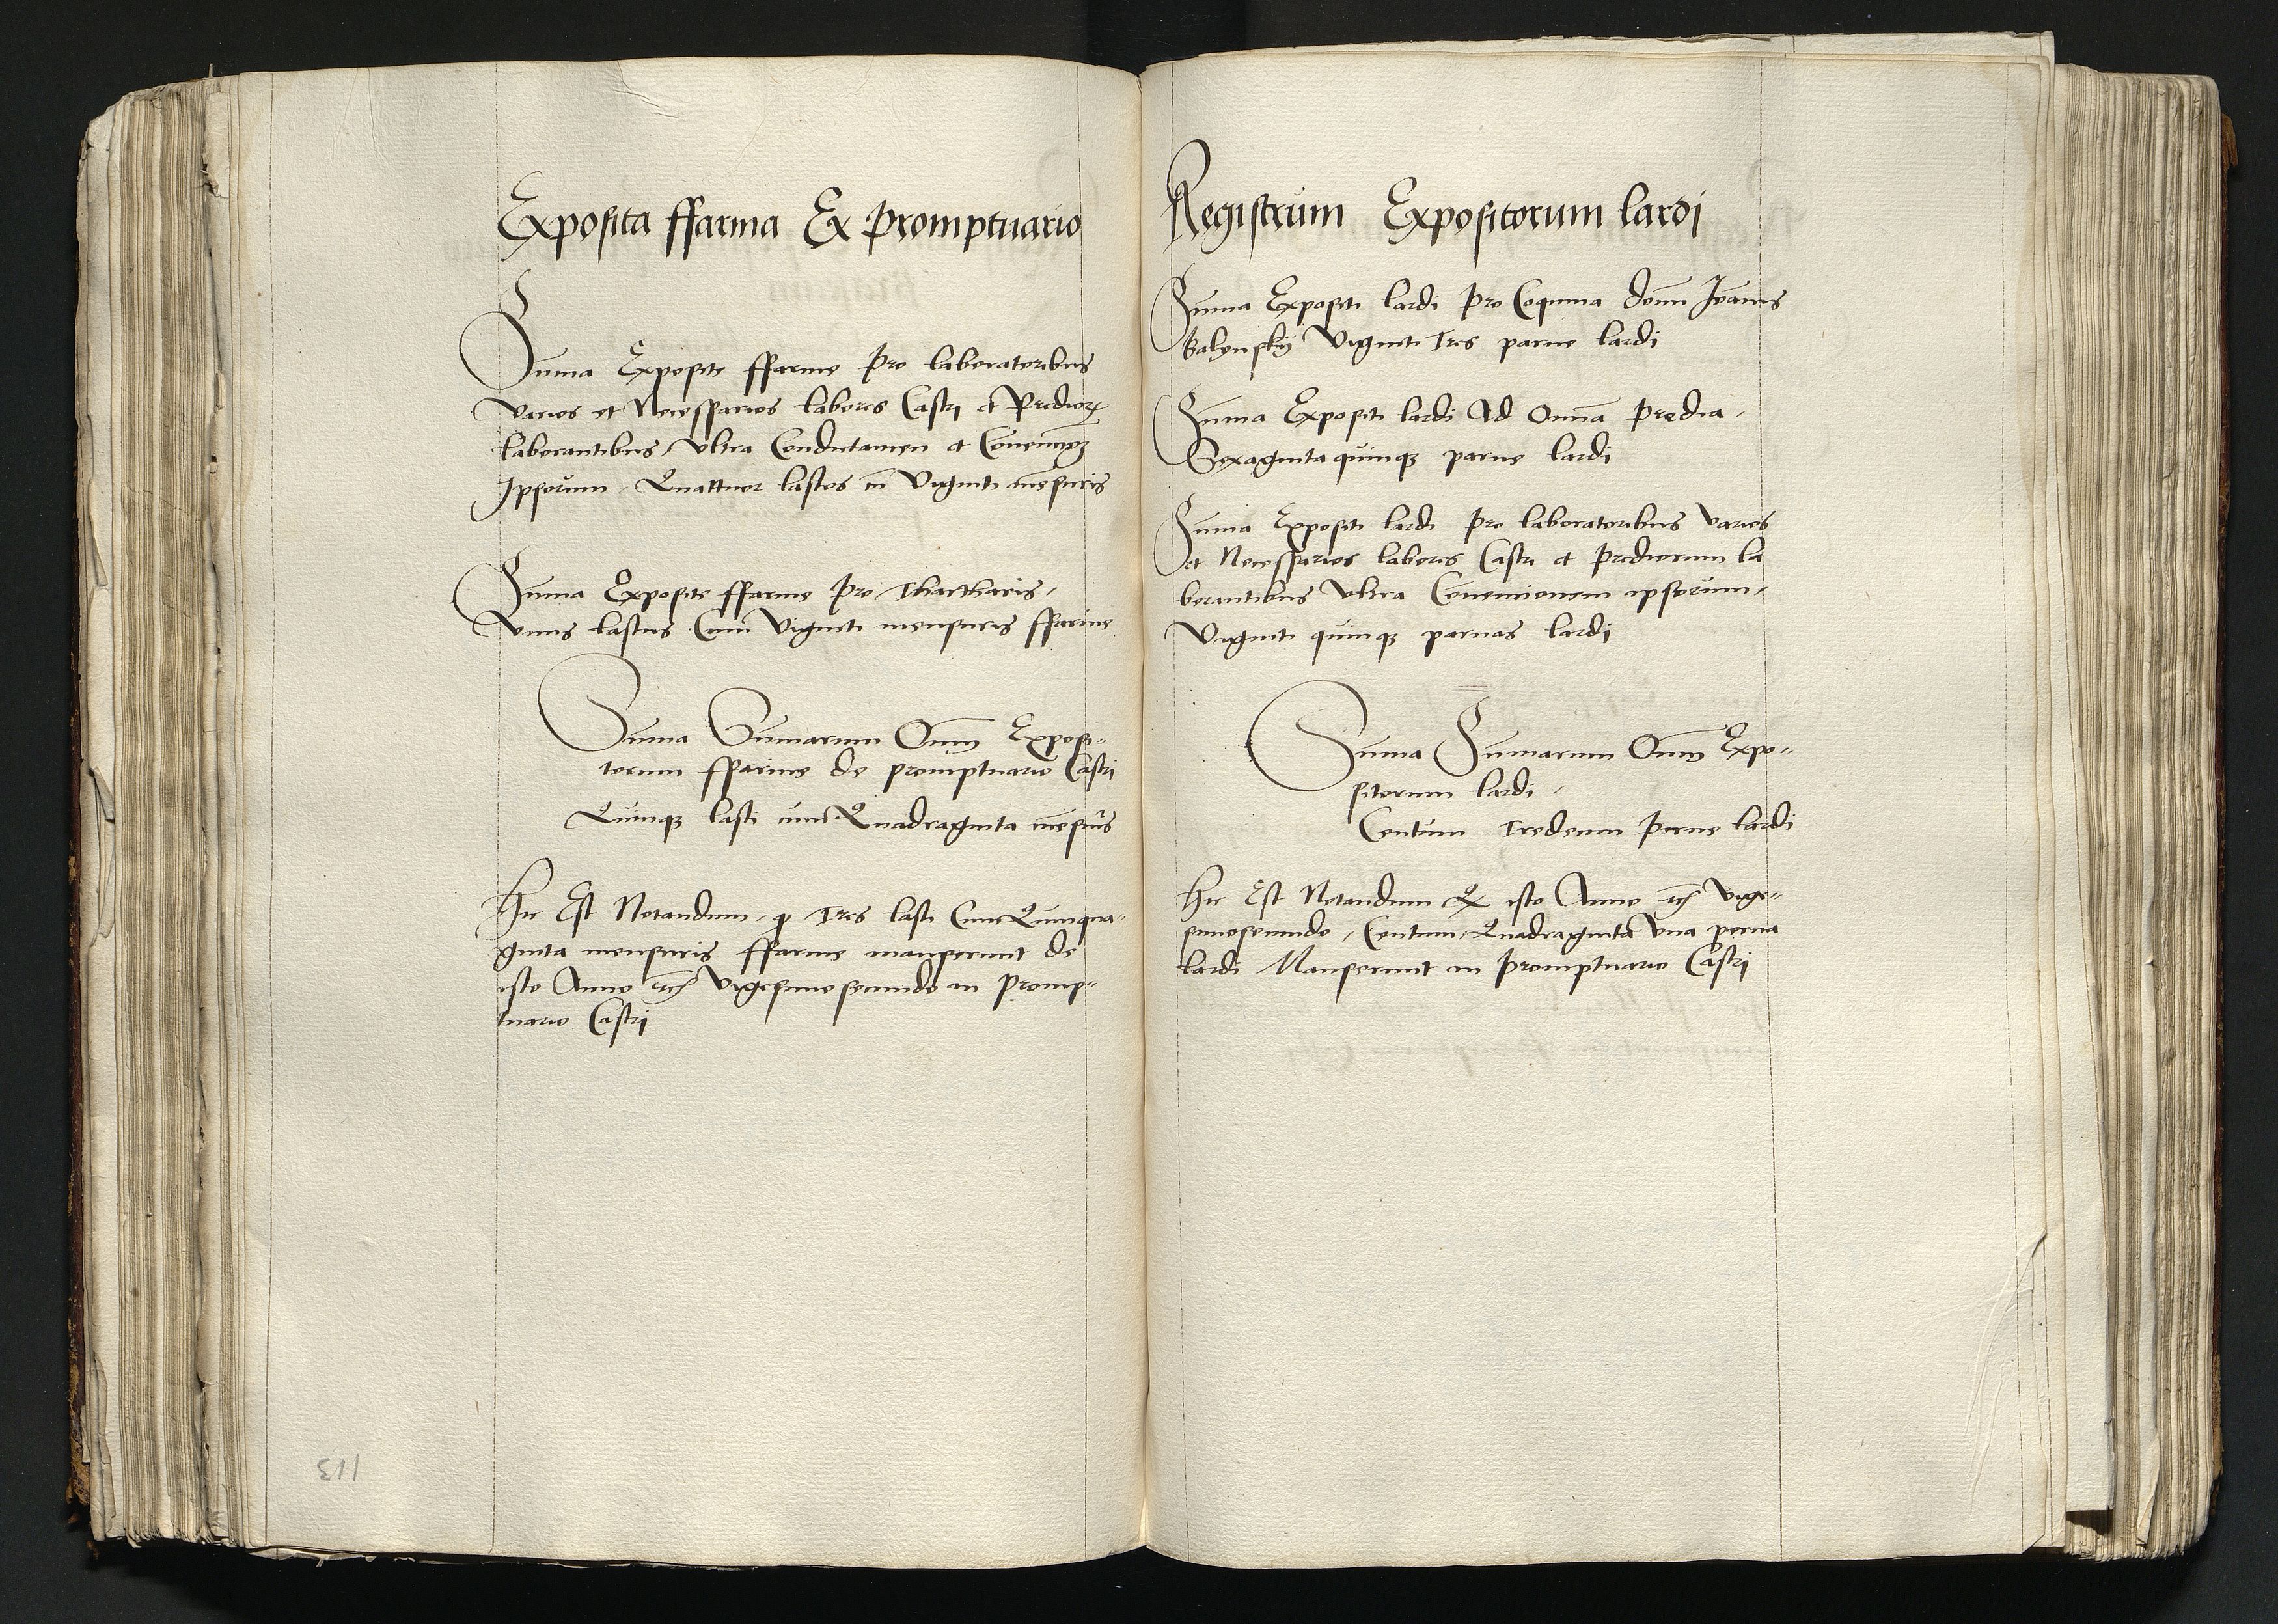 Exposita ffarina Ex Promptuario
Suma Exposite ffarine Pro laboratoribus
varios et Necessarios labores Castri et Predior
laborantibus, vltra Conductamen et
Ipsorum, Quattuor lastos cu Viginti mesuris
Suma Exposite ffarine Pro Thartharis,
Vnus lastus Cum Viginti mensuris ffarine
Suma Sumarum Oim Exposi=
torum ffarine de promptuario Castri
Quinq lasti cum Quadraginta mesuris
Hic Est Notandum, q Tres lasti Cum Quinqua=
ginta mensuris ffarine manserunt de
isto Anno Vigesimo secundo in Promp=
tuario Castri
113
Registrum Expositorum lardi
Suma Expositi lardi Pro Coquina domi Ioanis
Balynskij Viginti Tres parne lardi
Suma Expositi lardi Ad Omia Predia,
Sexaginta quinq parne lardi
Suma Expositi lardi Pro laboratoribus varios
et Necessarios labores Castri et Prediorum la
borantibus vltra Conuencionem ipsorum,
Viginti quinq parnas lardi
Suma Sumarum Oim Expo=
sitorum lardi,
Centum Tredecim Perne lardi
Hic Est Notandum Q isto Anno Vige=
simosecundo, Centum, Quadraginta Vna perna
lardi Manserunt in Promptuario Castri